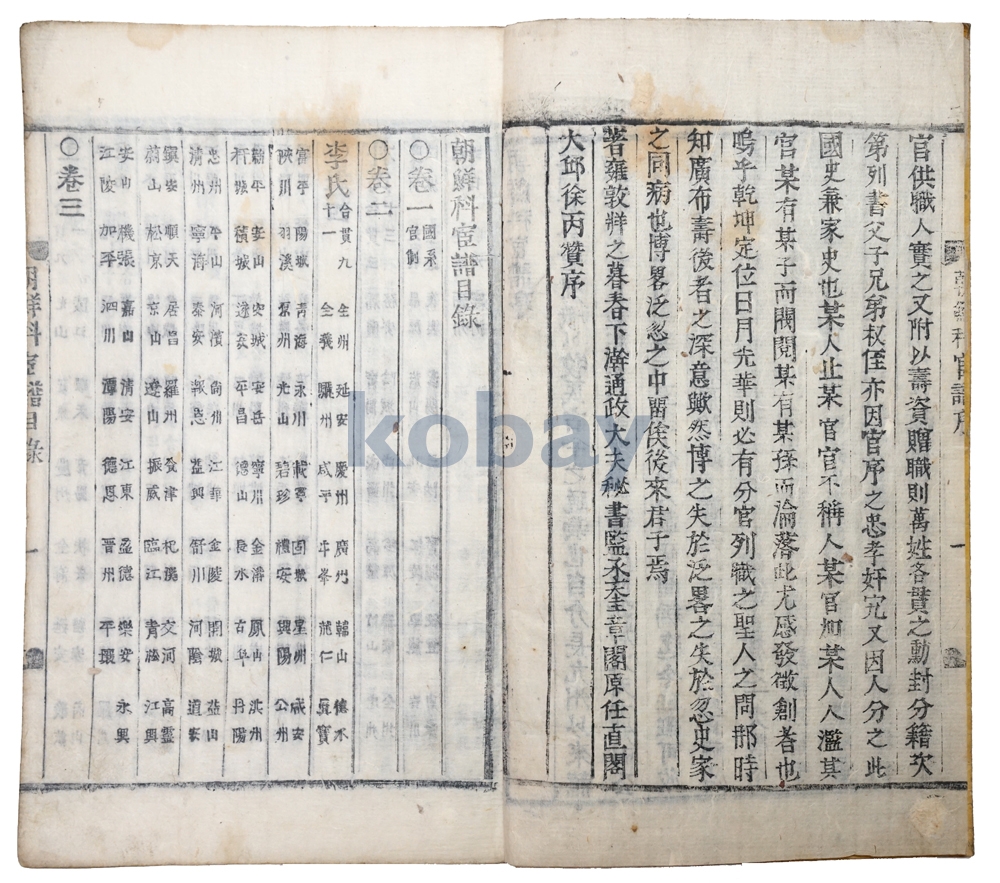 官供職人實之又附以壽資贈職則萬姓各貫之勳封分籍次
第列書父子兄弟叔侄亦因官序之忠孝奸宄又因人分之此
國史兼家史也某人止某官官不稱人某官如某人人濫其
官某有某子而閥閱某有某孫而淪落此尤感發徵創者也
嗚乎乾坤定位日月光華則必有分官列職之聖人之間耶時
知廣布壽後者之深意歟然博之失於泛畧之失於忽史家
之同病也博畧泛忽之中留俟後來君子焉
著雍敦牂之暮春下澣通政大夫秘書監丞奎章閣原任直閣
大邱徐丙贊序
朝鮮科宦譜序
一
朝鮮科宦譜目錄
○卷一 國系 官制
○卷二
李氏 合貫九十一 全州 延安 慶州 廣州 韓山 德水
全義 驪州 咸平 牛峯 龍仁 眞寶
富平 陽城 靑海 永川 載寧 固城 星州 咸安
陜川 羽溪 原州 光山 碧珍 禮安 興陽 公州
安山 安城 安岳 寧川 金浦 鳳山 洪州
積城 遂安 平昌 德山 長水 古阜 丹陽
忠州 平山 河濱 尙州 江華 金陵 開城 益山
淸州 寧海 泰安 報恩 益興 舒川 河陰 道安
安 順天 居昌 羅州 津 杞溪 交河 高靈
蔚山 松京 京山 遂山 振威 臨江 靑松 江興
安山 機張 嘉山 淸安 江東 盈德 樂安 永興
江陵 加平 泗川 潭陽 德恩 晋州 平壤
○卷三
朝鮮科宦譜目錄
一
kobay